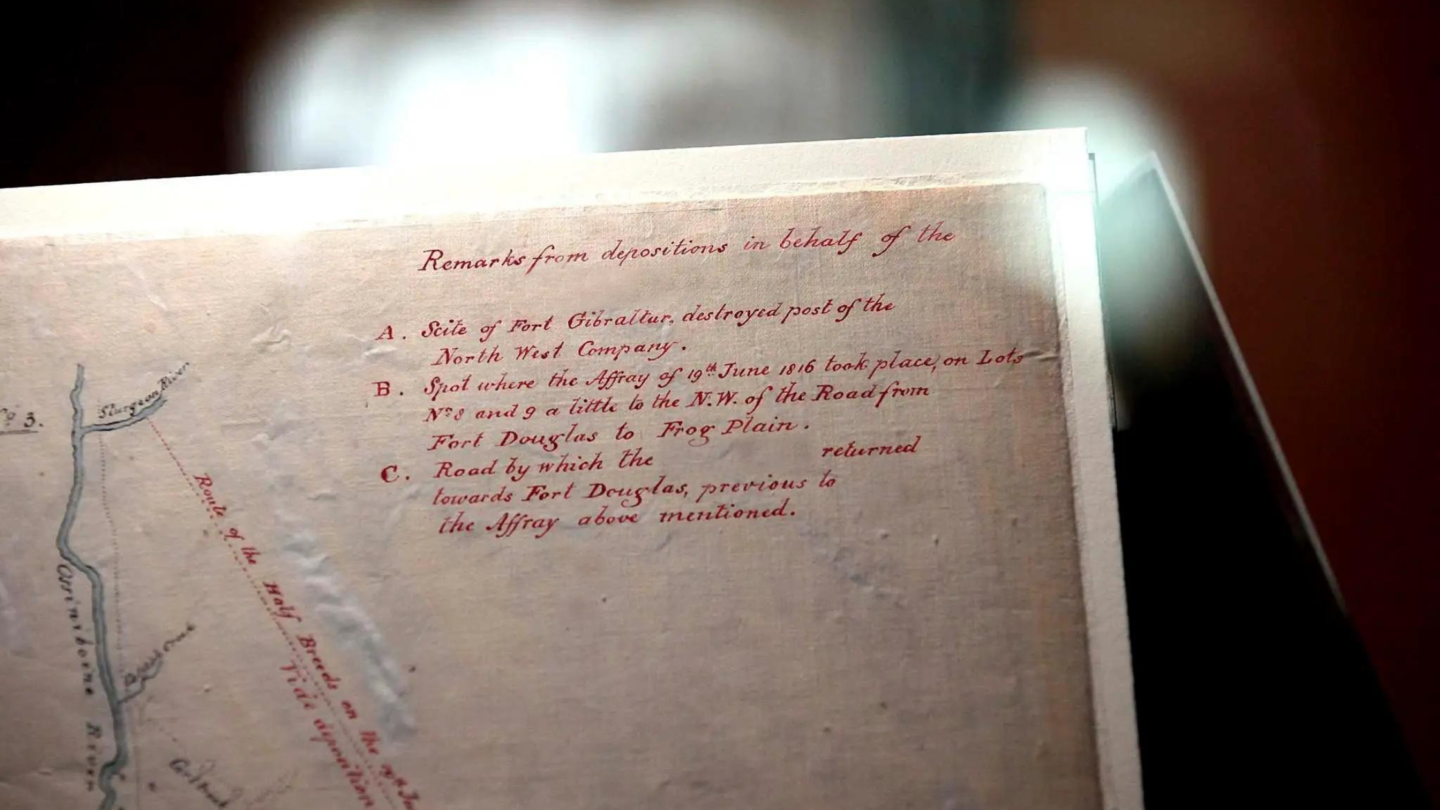 Remarks from depositions in behalf of the
A. Scite of Fort Gibraltur, destroyed post of the
North West Company.
B. Spot where the Affray of 19th June 1816 took place, on Lots
No 8 and 9 a little to the N.W. of the Road from
Fort Douglas to Frog Plain.
C. Road by which the returned
towards Fort Douglas, previous to
the Affray above mentioned.
No 3.
Sturgeon River
Route of the Half Breeds on the 19th
Vide deposition
River